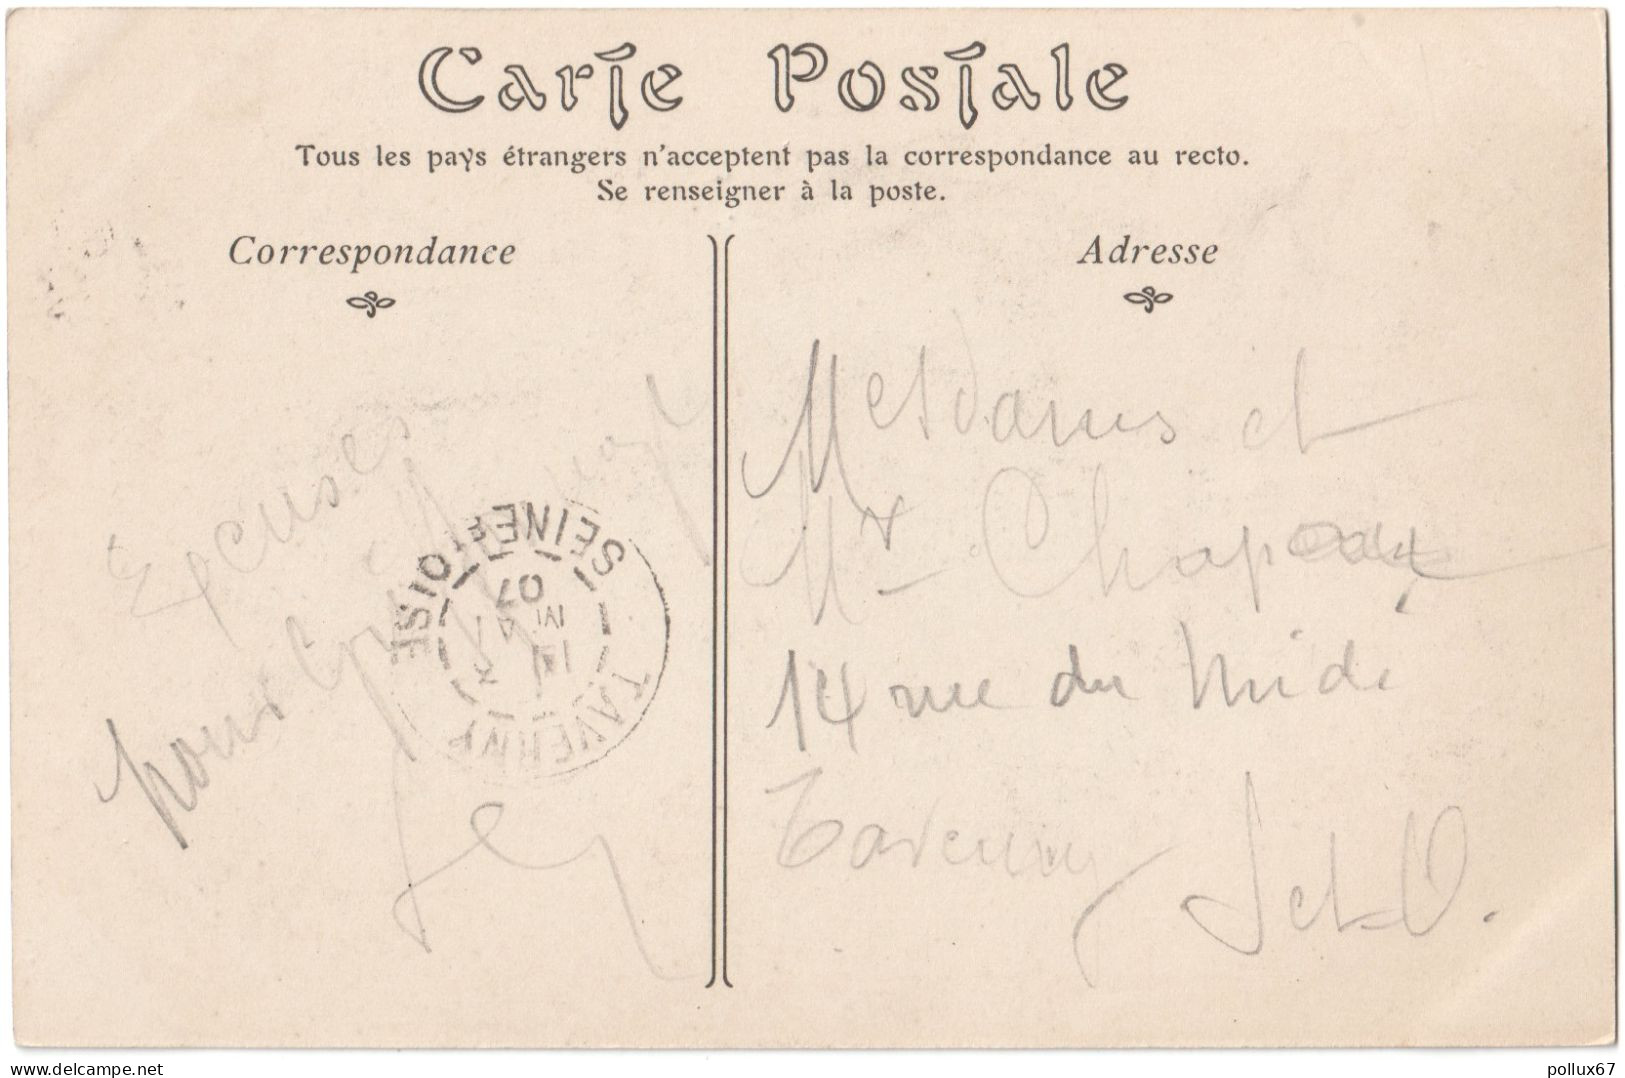 Carte Postale
Tous les pays étrangers n'acceptent pas la correspondance au recto.
Se renseigner à la poste.
Correspondance
Adresse
Excuses
pour
SEINE-ET-OISE
07
TAVERNY
Mesdames et
Mr Chapeaux
14 rue du Midi
Taverny
S et O.
www.delcampe.net
pollux67